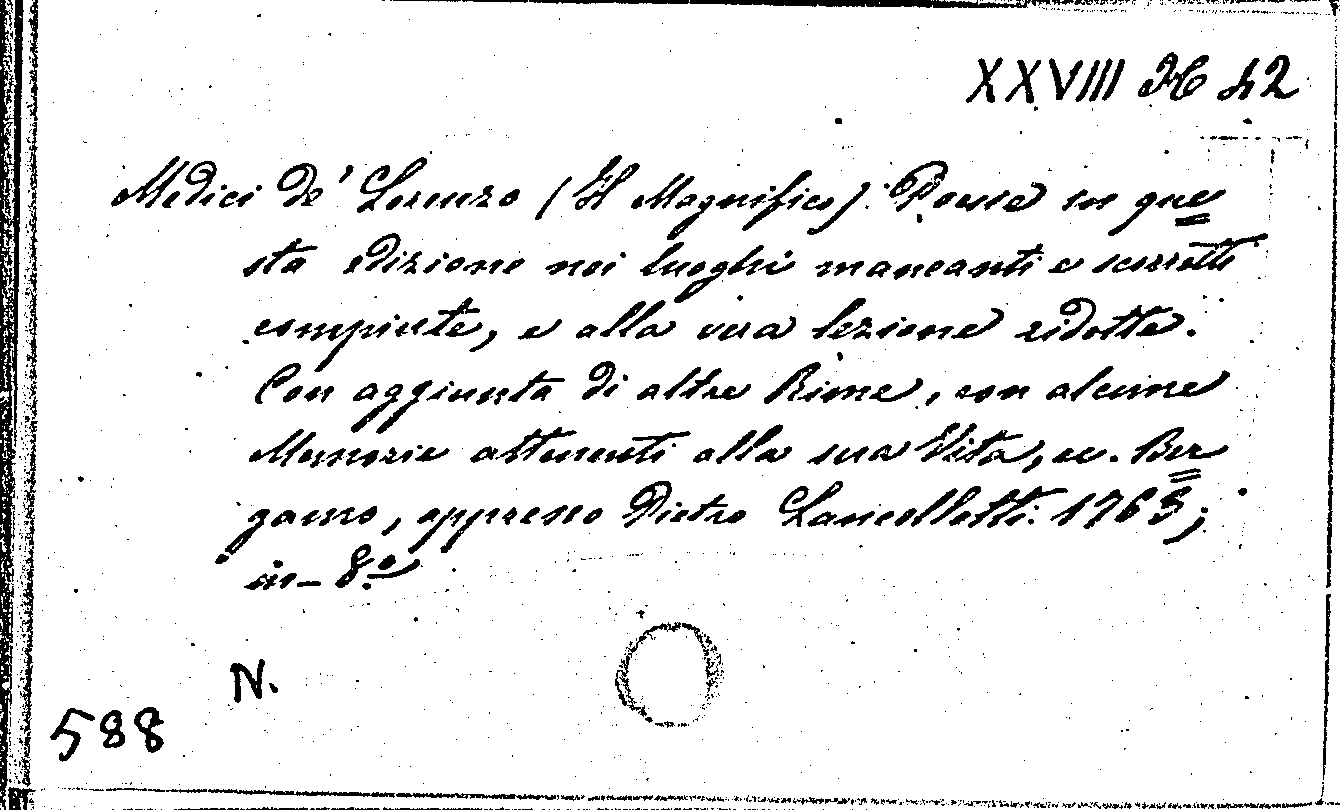 XXVIII H 42
Medici de' Lorenzo (Il Magnifico). Poesie in que=
sta edizione nei luoghi mancanti e scorretti
compiute, e alla vera lezione ridotte.
Con aggiunta di altre Rime, con alcune
Memorie attenenti alla sua Vita, ec. Ber=
gamo, appresso Pietro Lancellotti. 1763;
in-8.º
N.
588